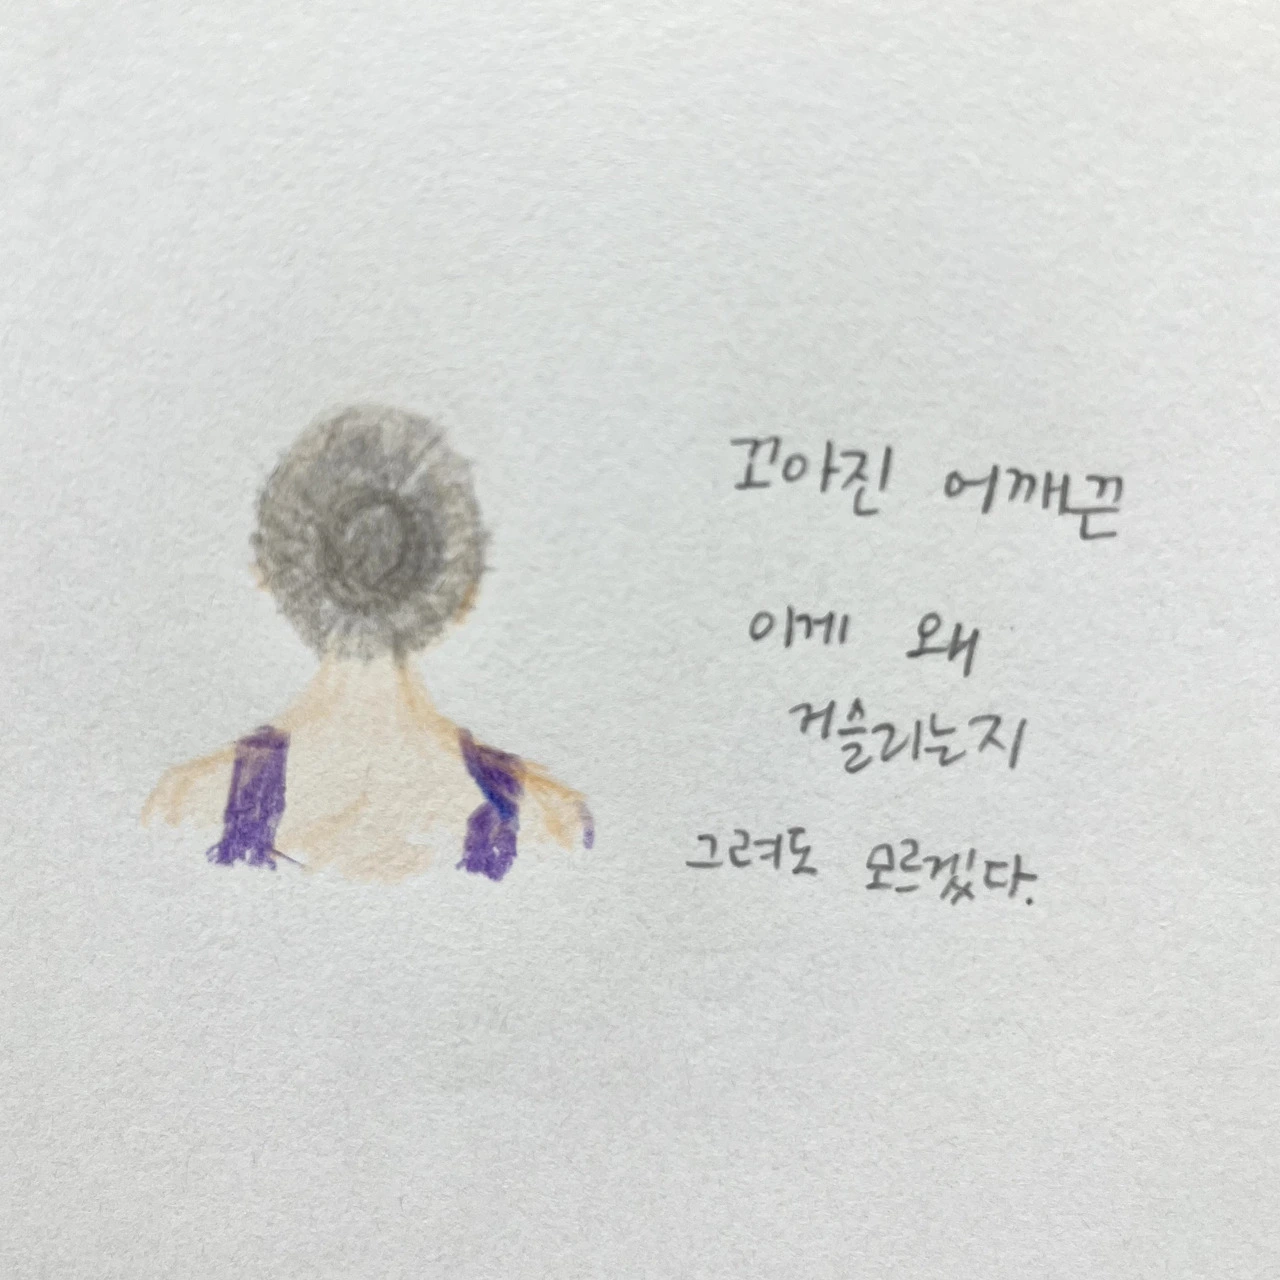 꼬아진 어깨끈
이게 왜
거슬리는지
그려도 모르겠다.